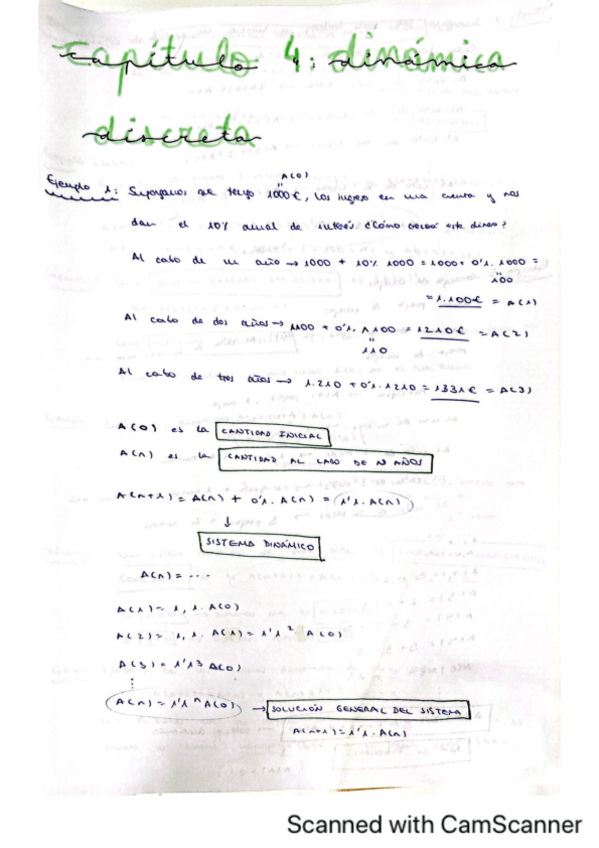 Capítulo 4: dinámica
discreta
A(0)
Ejemplo 1: Supongamos que tengo 1000€, los ingreso en una cuenta y nos
dan el 10% anual de interés ¿Cómo crece este dinero?
Al cabo de un año → 1000 + 10% 1000 = 1000 + 0'1. 1000 =
100
= 1.100€ = A(1)
Al cabo de dos años → 1100 + 0'1. 1100 = 1210€ = A(2)
110
Al cabo de tres años → 1.210 + 0'1. 1210 = 1331€ = A(3)
A(0) es la CANTIDAD INICIAL
A(n) es la CANTIDAD AL CABO DE N AÑOS
A(n+1) = A(n) + 0'1. A(n) = 1'1. A(n)
↓
SISTEMA DINÁMICO
A(n) = ...
A(1) = 1,1. A(0)
A(2) = 1,1. A(1) = 1'1² A(0)
A(3) = 1'1³ A(0)
⋮
A(n) = 1'1ⁿ A(0) → SOLUCIÓN GENERAL DEL SISTEMA
A(n+1) = 1'1. A(n)
Scanned with CamScanner